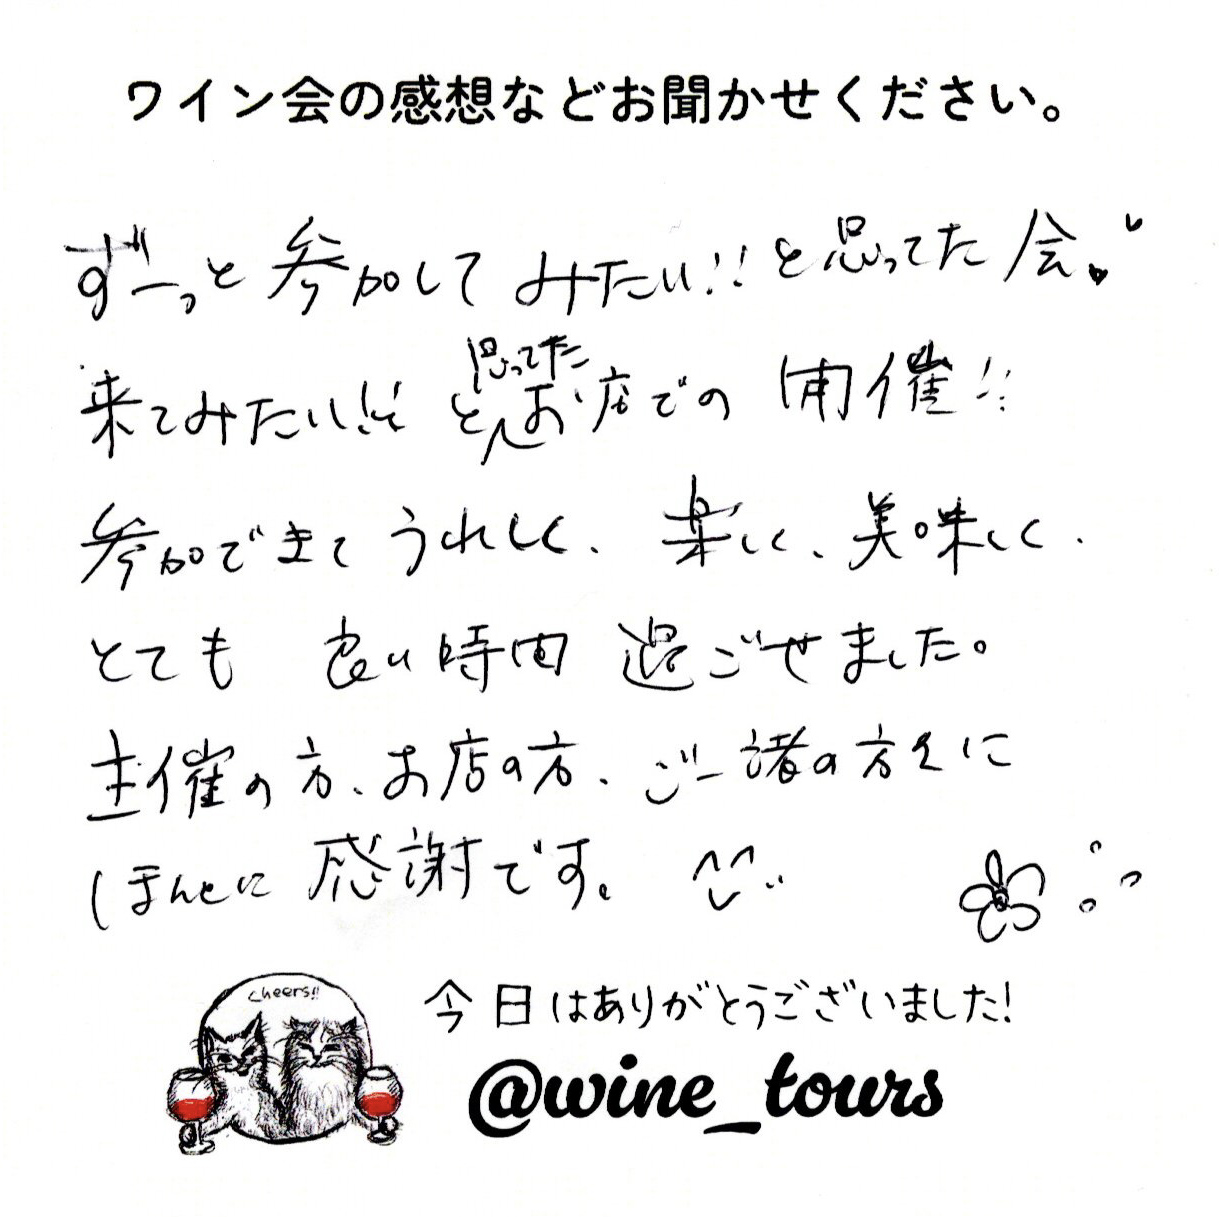 ワイン会の感想などお聞かせください。
ずーっと参加してみたい!!と思ってた会。
来てみたい!!と思ってたお店での開催!!
参加できてうれしく、楽しく、美味しく、
とても良い時間過ごせました。
主催の方、お店の方、ご一諸の方々に
ほんとに感謝です。
cheers!!
今日はありがとうございました!
@wine_tours